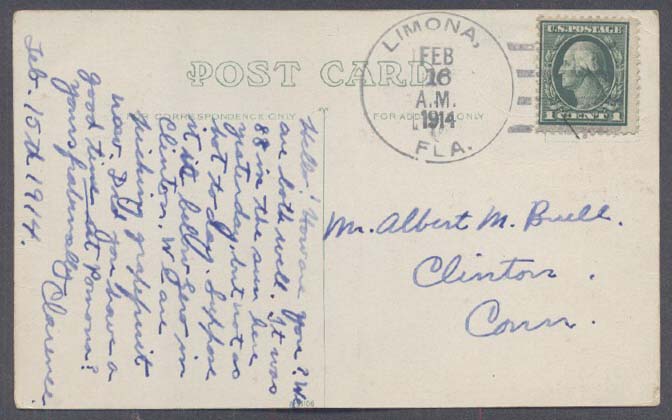 POST CARD
FOR CORRESPONDENCE ONLY
FOR ADDRESS ONLY
LIMONA,
FEB
16
A.M.
1914
FLA.
U.S. POSTAGE
1 CENT 1
Hello! How are you? We
are both well. It was
88 in the sun here
yesterday, but not as
hot to day. Suppose
it is below zero in
Clinton. We are
picking grapefruit
now. Did you have a
good time at Pomona?
Yours fraternally Clarence.
Feb. 15th 1914.
Mr. Albert M. Buell.
Clinton.
Conn.